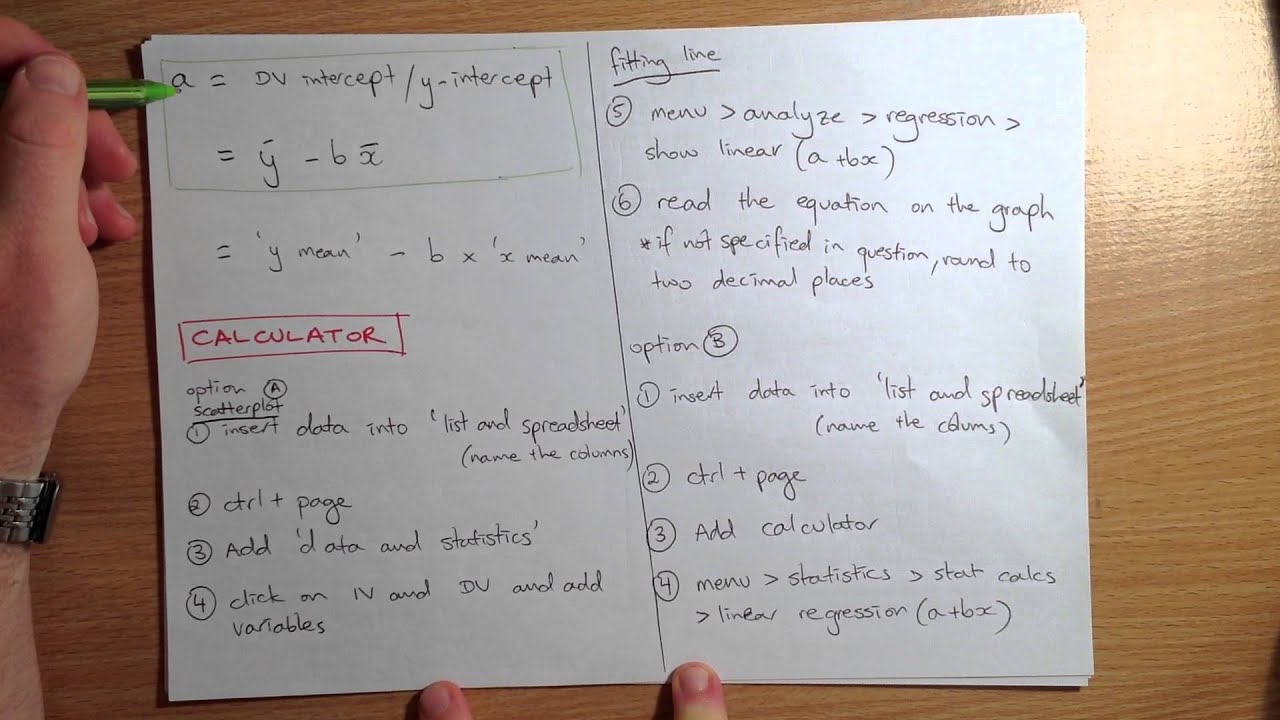 a = DV intercept / y-intercept
= ȳ - b x̄
= 'y mean' - b × 'x mean'
CALCULATOR
option Ⓐ
scatterplot
① insert data into 'list and spreadsheet'
(name the columns)
② ctrl + page
③ Add 'data and statistics'
④ click on IV and DV and add
variables
fitting line
⑤ menu > analyze > regression >
show linear (a+bx)
⑥ read the equation on the graph
* if not specified in question, round to
two decimal places
option Ⓑ
① insert data into 'list and spreadsheet'
(name the colums)
② ctrl + page
③ Add calculator
④ menu > statistics > stat calcs
> linear regression (a+bx)